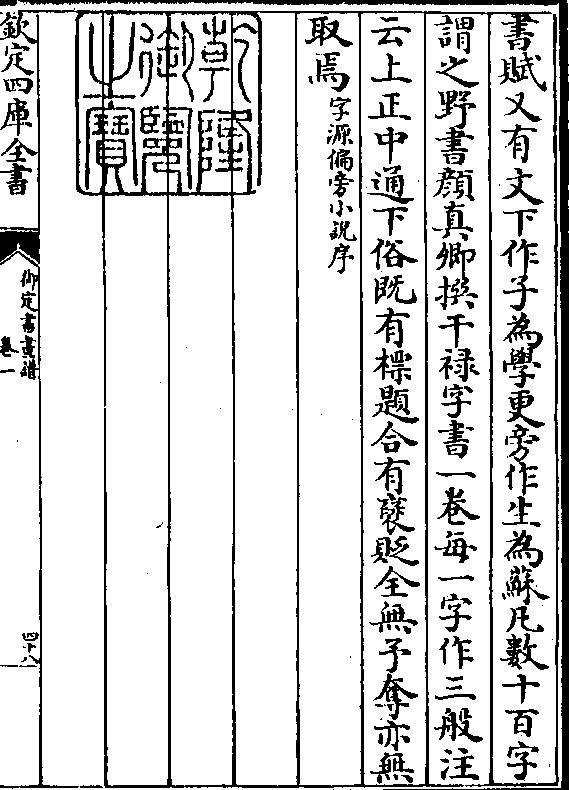 書賦又有文下作子為學更旁作生為蘇凡數十百字
謂之野書顔真卿撰干禄字書一卷每一字作三般注
云上正中通下俗既有標題合有襃貶全無予奪亦無
取焉字源偏旁小說序
乾隆
御覽
之寶
欽定四庫全書
御定書畫譜
卷一
四十八